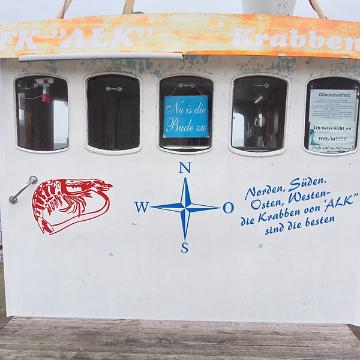 FK "ALK" Krabben
Nu is die
Bude zu
N
W O
S
Norden, Süden,
Osten, Westen-
die Krabben von "ALK"
sind die besten